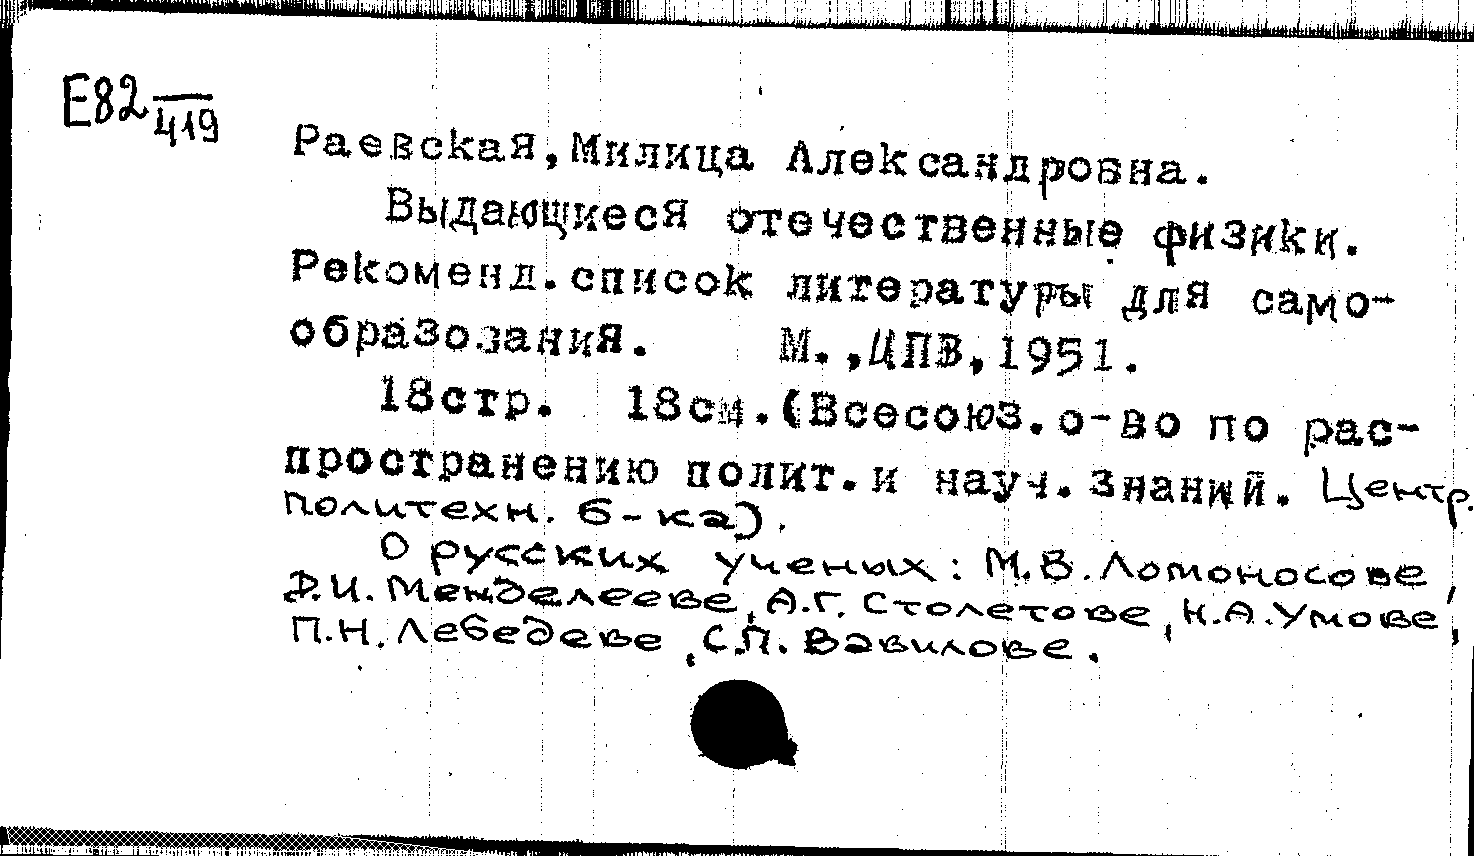 Е82
419
Раевская, Милица Александровна.
Выдающиеся отечественные физики.
Рекоменд. список литературы для само-
образования. М., ЦПБ, 1951.
18стр. 18см. (Всесоюз. о-во по рас-
пространению полит. и науч. знаний. Центр.
политехн. б-ка).
О русских ученых: М.В. Ломоносове,
Д.И. Менделееве, А.Г. Столетове, Н.А. Умове,
П.Н. Лебедеве, С.П. Вавилове.